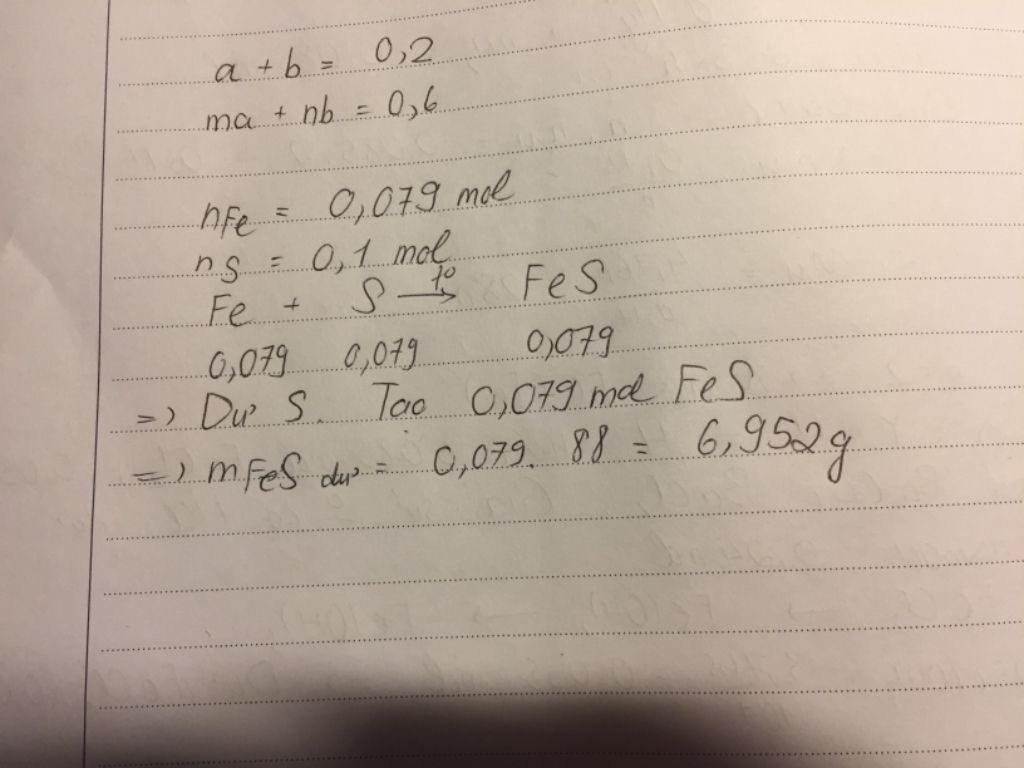 a + b = 0,2
ma + nb = 0,6
nFe = 0,079 mol
nS = 0,1 mol
Fe + S →t° FeS
0,079 0,079 0,079
=> Dư S. Tạo 0,079 mol FeS
=> mFeS dư = 0,079. 88 = 6,952g